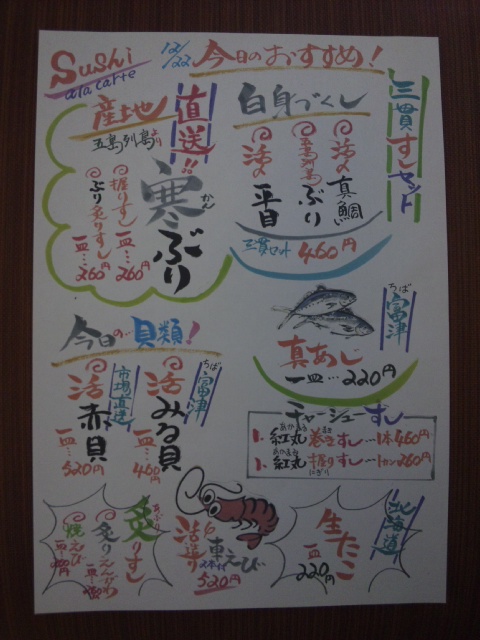 Sushi
a la carte
12/22 今日のおすすめ!
三貫すしセット
白身づくし
活〆真鯛
五島列島ぶり
活〆平目
三貫セット 460円
産地直送!!
五島列島より
寒ぶり
かん
握りすし 一皿…260円
ぶり炙りすし 一皿…260円
ちば
富津
真あじ
一皿…220円
今日の貝類!
ちば
富津
活みる貝
一皿…460円
市場直送
活赤貝
一皿…520円
チャーシューすし
あかまる
紅丸巻きすし…1本460円
あかまる
紅丸握りすし…1カン260円
にぎり
北海道
生たこ
一皿
220円
活車えび
520円
炙りすし
あぶり
炙りえんがわ
焼えび